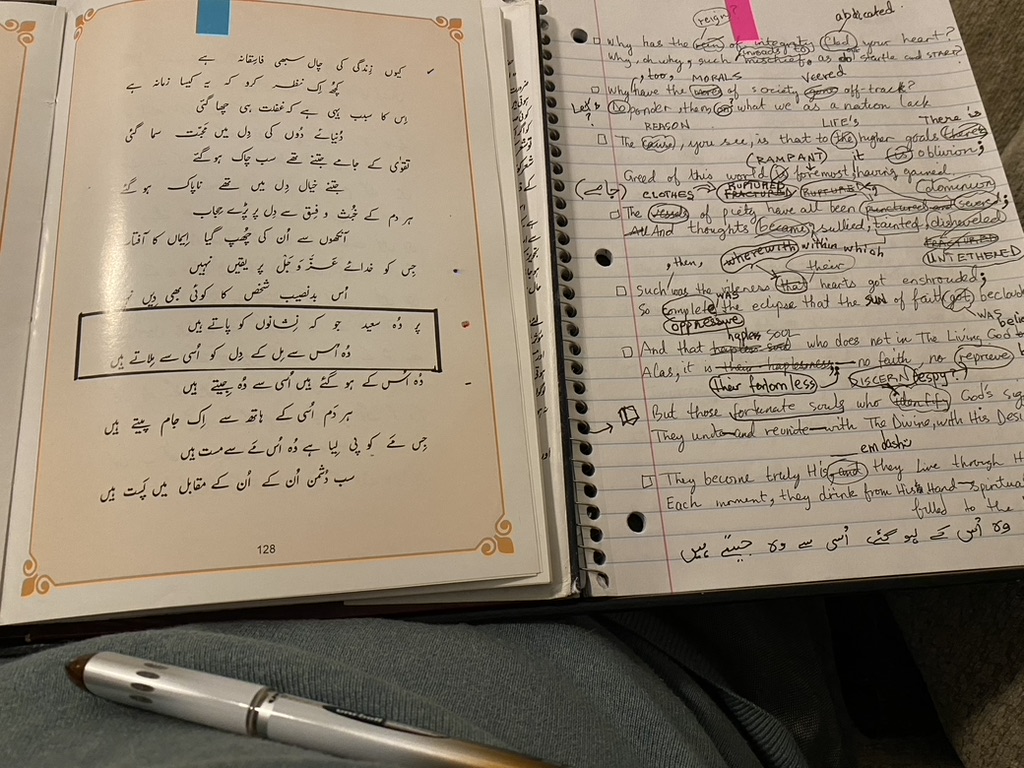 کیوں زندگی کی چال سبھی فاسقانہ ہے
کچھ اِک نظر کرو کہ یہ کیسا زمانہ ہے
اِس کا سبب یہی ہے کہ غفلت ہی چھا گئی
دُنیائے دُوں کی دِل میں محبّت سما گئی
تقویٰ کے جامے جتنے تھے سب چاک ہو گئے
جتنے خیال دِل میں تھے ناپاک ہو گئے
ہر دم کے خُبث و فِسق سے دِل پر پڑے حجاب
آنکھوں سے اُن کی چُھپ گیا اِیماں کا آفتا
جِس کو خدائے عَزَّ وَ جَلّ پر یقیں نہیں
اُس بدنصیب شخص کا کوئی بھی دِیں
پر وُہ سعید جو کہ نِشانوں کو پاتے ہیں
وُہ اُس سے مِل کے دِل کو اُسی سے مِلاتے ہیں
وُہ اُس کے ہو گئے ہیں اُسی سے وُہ جِیتے ہیں
ہر دَم اُسی کے ہاتھ سے اِک جام پیتے ہیں
جِس مَے کو پی لِیا ہے وُہ اُس مَے سے مست ہیں
سب دُشمن اُن کے اُن کے مقابل میں پَست ہیں
128
reign? abdicated
Why has the of integrity led your heart?
Why, oh why, such mischief as (inroads to) startle and START?
, too, MORALS veered
Why have the of society off-track?
Let's ponder then on what we as a nation lack
REASON LIFE'S There is
The cause, you see, is that to the higher goals there
(RAMPANT) it is oblivion;
Greed of this world is foremost, having gained
(جامے) CLOTHES RUPTURED FRACTURED RUPTURED, dominion
The vessels of piety have all been punctured and severed;
All And thoughts became sullied, tainted, disheveled
wherewith within which UNTETHERED
, then, their
Such was the vileness that hearts got enshrouded;
WAS
So complete the eclipse that the SUN of faith got beclou
oppressive WAS
hapless soul
And that hapless soul who does not in The Living God
Alas, it is their haplessness, no faith, no reprieve
their forlornless; DISCERN (espy?)
But those fortunate souls who identify God's Sig
They unite and reunite with The Divine, with His Desi
em dash
They become truly His, and they live through H
Each moment, they drink from His Hand—spiritua
filled to the
وہ اُس کے ہو گئے، اُسی سے وہ جیتے ہیں